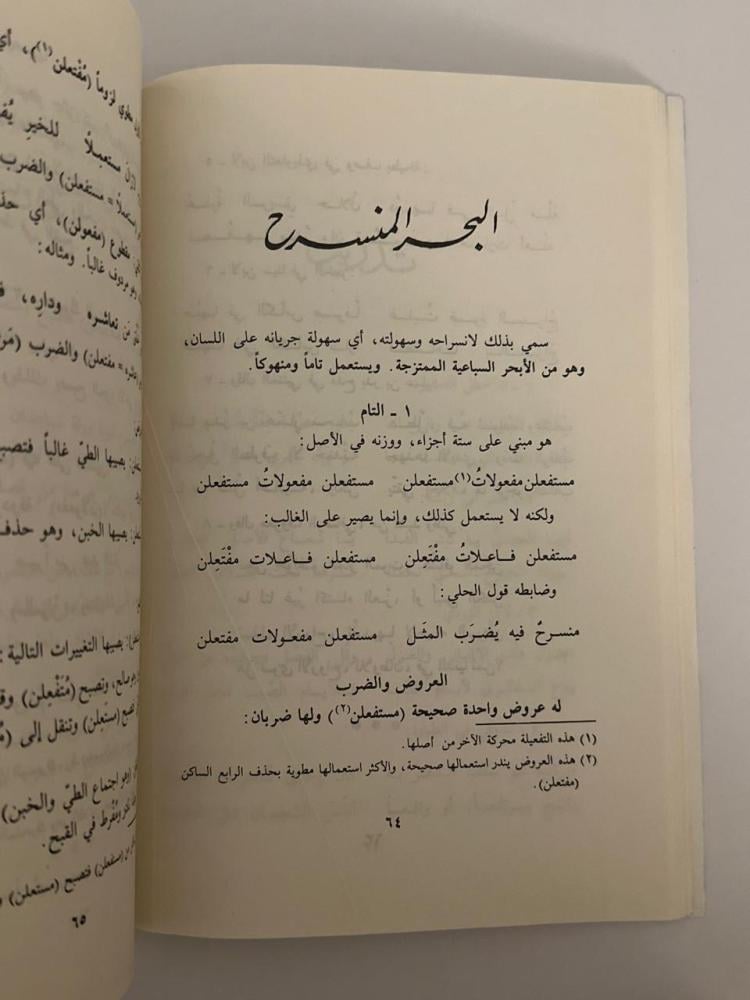 البحر المنسرح
سمي بذلك لانسراحه وسهولته، أي سهولة جريانه على اللسان،
وهو من الأبحر السباعية الممتزجة. ويستعمل تاماً ومنهوكاً.
١ - التام
هو مبني على ستة أجزاء، ووزنه في الأصل:
مستفعلن مفعولاتُ(١) مستفعلن مستفعلن مفعولاتُ مستفعلن
ولكنه لا يستعمل كذلك، وإنما يصير على الغالب:
مستفعلن فـاعلاتُ مفْتَعِلن مستفعلن فـاعلات مفْتَعِلن
وضابطه قول الحلي:
منسـرحٌ فيه يُضـرَب المثَـل مستفعلن مفعـولات مفتعلن
العروض والضرب
له عروض واحدة صحيحة (مستفعلن(٢)) ولها ضربان:
(١) هذه التفعيلة محركة الآخر من أصلها.
(٢) هذه العروض يندر استعمالها صحيحة، والأكثر استعمالها مطوية بحذف الرابع الساكن
(مفتعلن).
٦٤
لزوماً (مُفْتعلن(١))، أي
مستعمِـلاً للخيرِ
= مستفعلن) والضرب
مقطوع (مفعولن)، أي
مردوف غالباً. ومثاله:
تعاشره ودارِه،
= مفتعلن) والضرب
يصيبها الطيّ غالباً فتصبح
يصيبها الخبن، وهو حذف
يصيبها التغييرات التالية:
وتصبح (مُتَفْعِلن)
تصبح (مستَعِلن) وتنقل إلى
اجتماع الطيّ والخبن)
ومُفْرط في القبح.
فتصبح (مستعلن)
٦٥